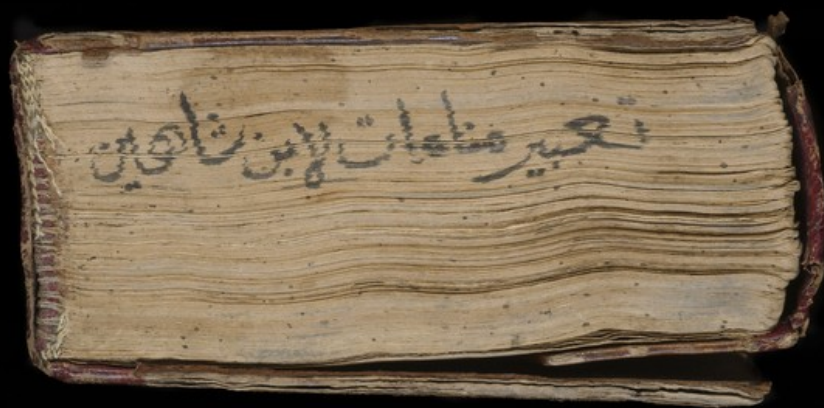 تعبير منامات لابن شاهين